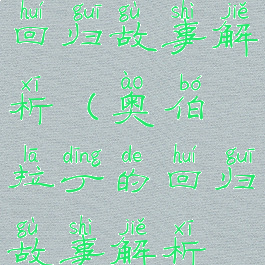 huí guī gù shì jiě
回归故事解
xī ào bó
析(奥伯
lā dīng de huí guī
拉丁的回归
gù shì jiě xī
故事解析